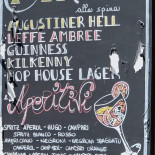 alla spina:
AUGUSTINER HELL
LEFFE AMBREE
GUINNESS
KILKENNY
HOP HOUSE LAGER
Aperitivi
SPRITZ APEROL - HUGO - CAMPARI
SPRITZ BIANCO - ROSSO
AMERICANO - NEGRONI - NEGRONI SBAGLIATO